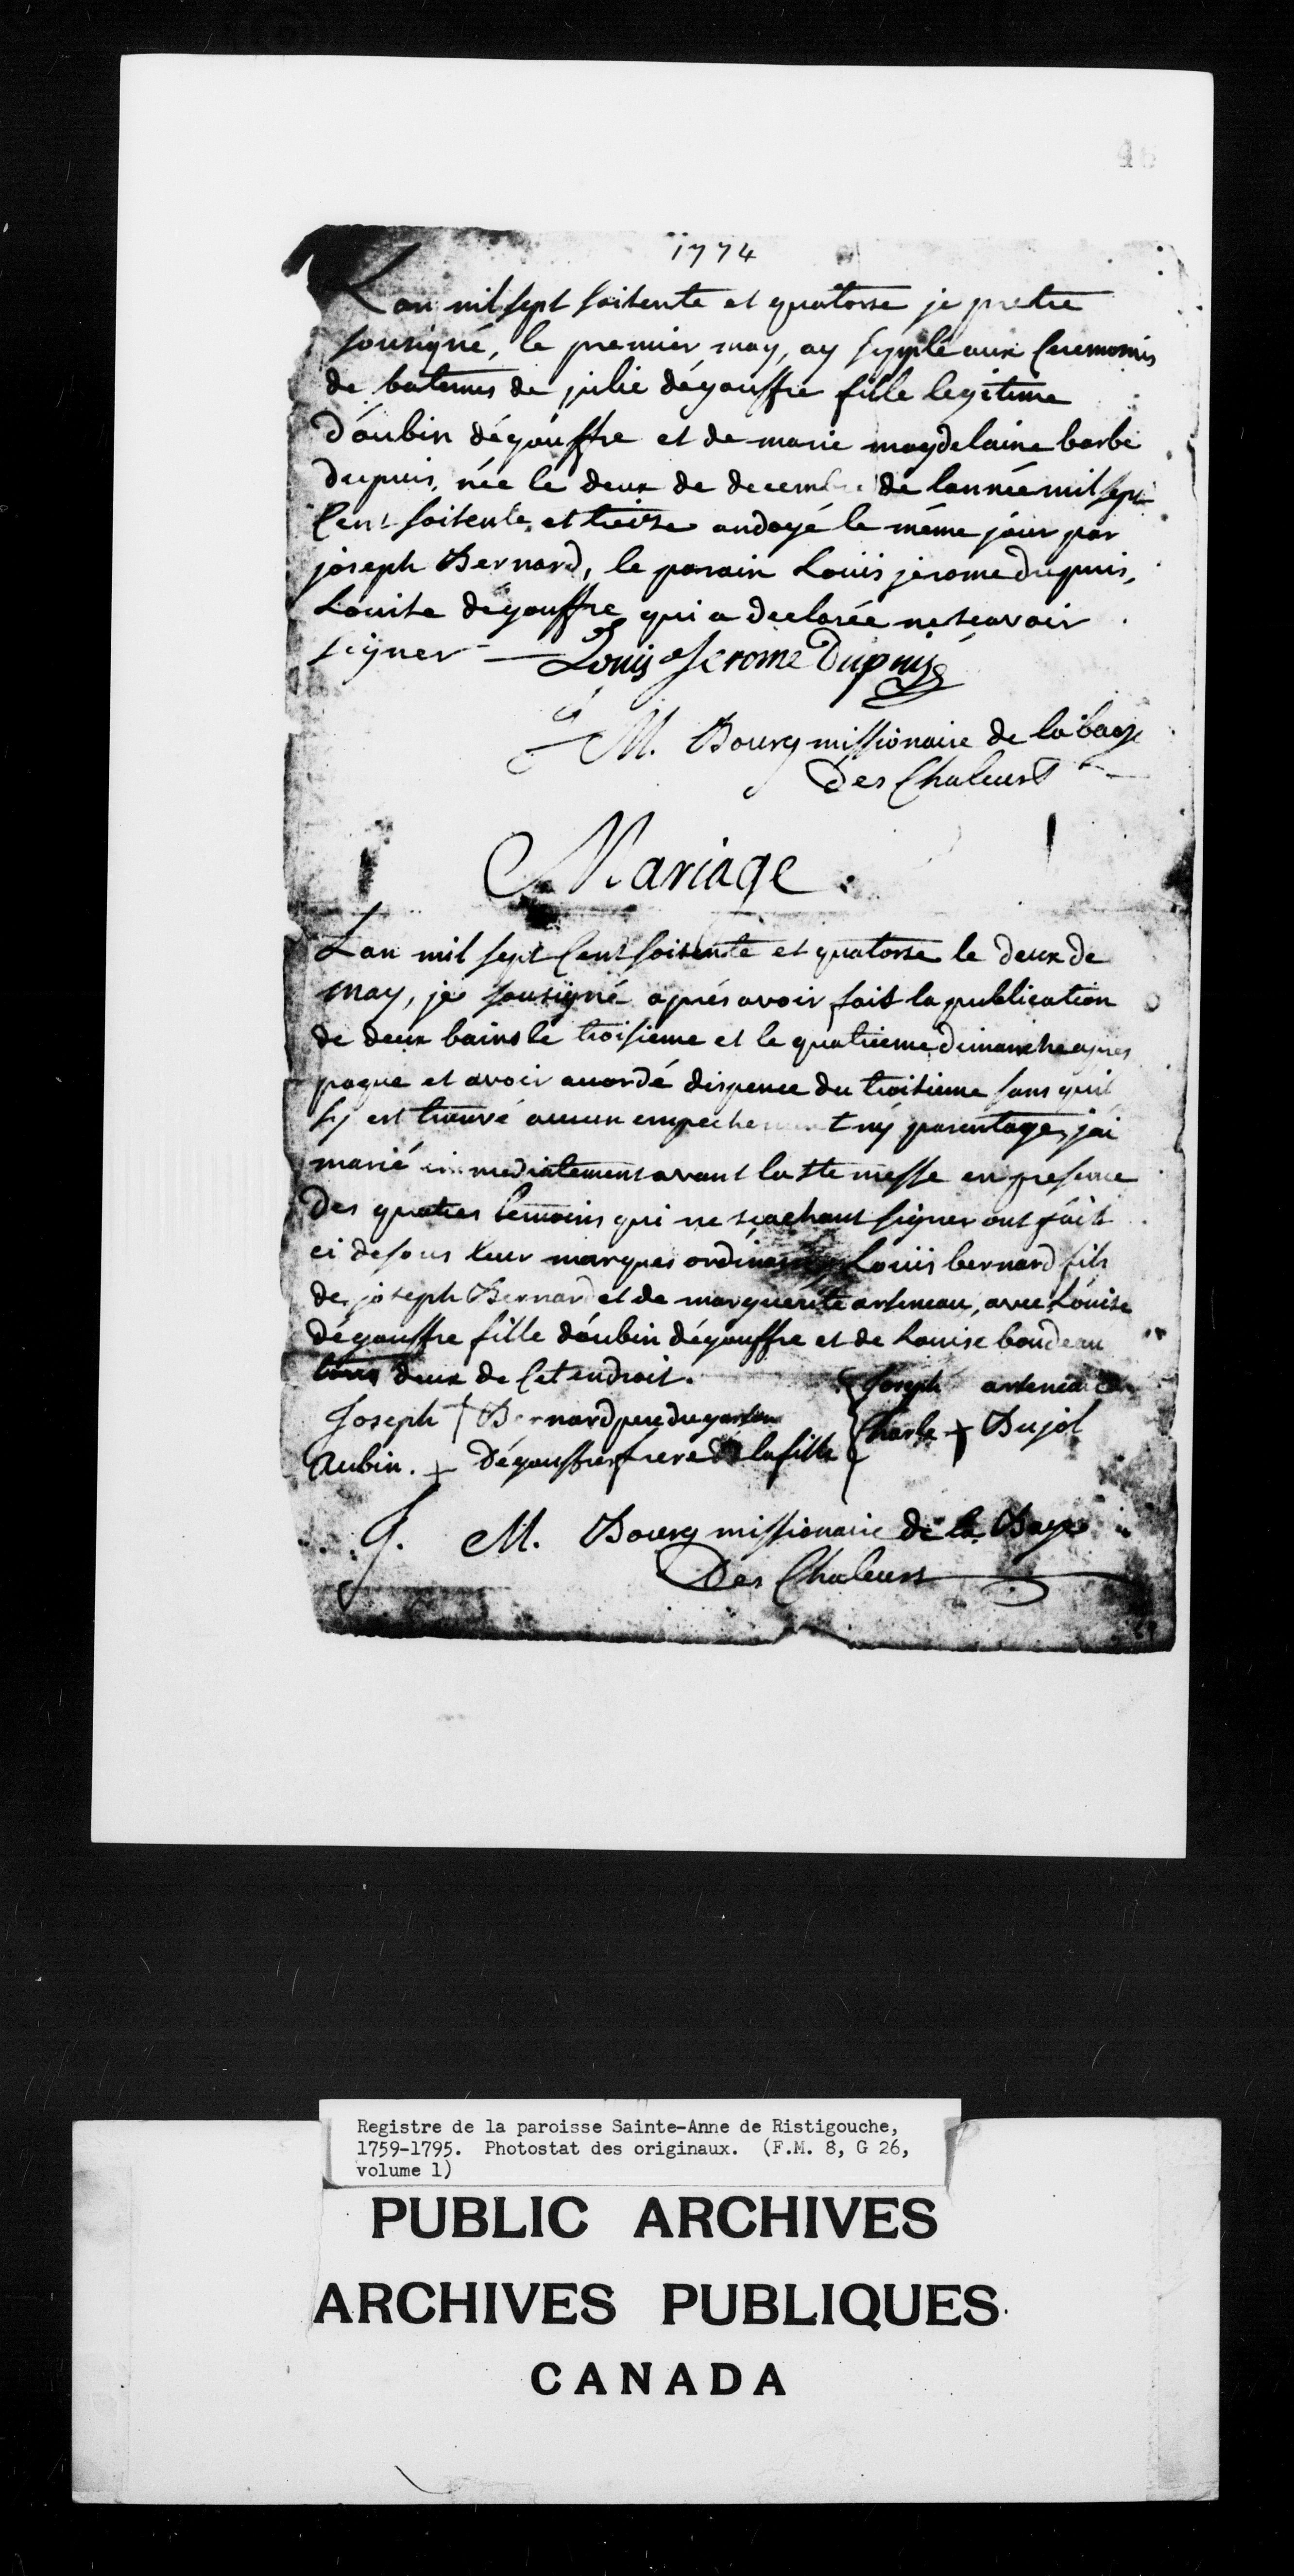 46
1774
Lan mil sept soitente et quatorse je pretre
sousigné, le premier may, ay supplé aux Ceremonis
de batemes de julie dégouffre fille legitime
d'aubin dégouffre et de marie magdelaine barbe
dupuis, née le deux de decembre de lannée mil sept
Cent soitente et treize ondoyé le même jour par
joseph Bernard, le parain Louis jerome dupuis,
Louise dégouffre qui a declarée ne scavoir
signer — Louis Jerome Dupuis
M. Bourg missionaire de la baye
Des Chaleurs
Mariage.
Lan mil sept Cent soitente et quatorse le deux de
may, je sousigné aprés avoir fait la publication
de deux bains le troisieme et le quatrieme dimanche apres
paque et avoir accordé dispence du troisieme sans quil
sy est trouvé aucun empechement ny parentage, jai
marié immediatement avant la ste messe en presence
des quatres temoins qui ne scachant signer ont fait
ci desous leur marques ordinaires Louis bernard fils
de joseph Bernard et de marguerite arseneau, avec Louise
dégouffre fille d'aubin dégouffre et de Louise boudeau
tous deux de Cet endroit.
Joseph arseneau
Joseph + Bernard pere du garson
Charle + Dujol
Aubin. + Dégouffre frere de la fille
J. M. Bourg missionaire de la Baye
Des Chaleurs
Registre de la paroisse Sainte-Anne de Ristigouche,
1759-1795. Photostat des originaux. (F.M. 8, G 26,
volume 1)
PUBLIC ARCHIVES
ARCHIVES PUBLIQUES
CANADA